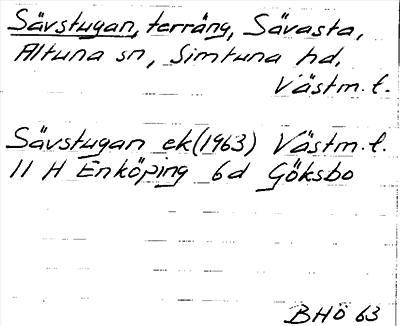 Sävstugan, terräng, Sävasta,
Altuna sn, Simtuna hd.
Västm. l.
Sävstugan ek (1963) Västm. l.
11 H Enköping 6d Göksbo
BHÖ 63